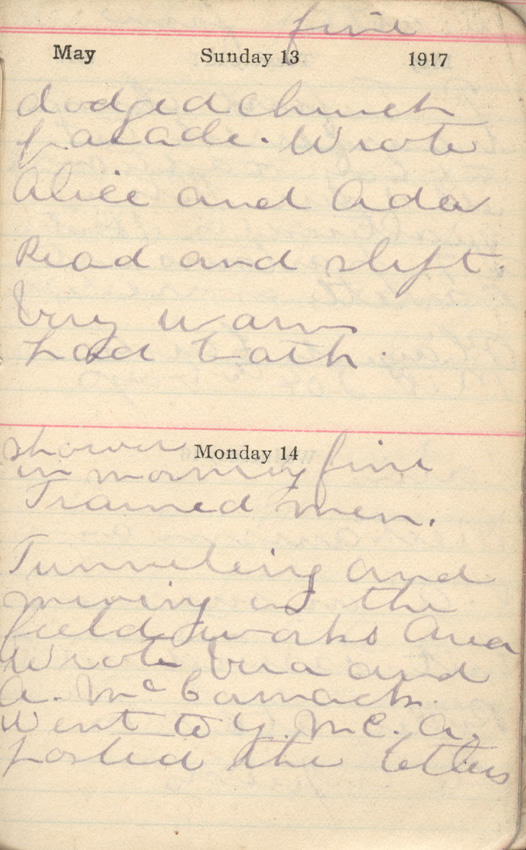 fine
May Sunday 13 1917
dodged church
parade. Wrote
Alice and Ada
Read and slept.
Very warm
had bath.
shower Monday 14 fine
in morning
Trained men.
Tunneling and
mining in the
field works area
Wrote Vera and
A. McCormack.
Went to Y.M.C.A.
posted the letters